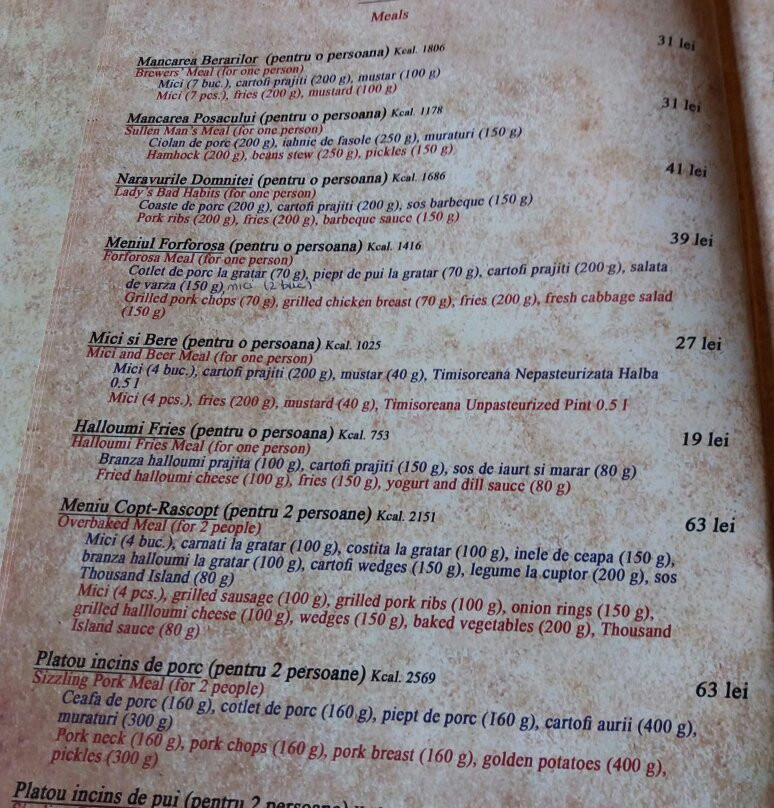 Meals
Mancarea Berarilor (pentru o persoana) Kcal. 1806 31 lei
Brewers' Meal (for one person)
Mici (7 buc.), cartofi prajiti (200 g), mustar (100 g)
Mici (7 pcs.), fries (200 g), mustard (100 g)
Mancarea Posacului (pentru o persoana) Kcal. 1178 31 lei
Sullen Man's Meal (for one person)
Ciolan de porc (200 g), iahnie de fasole (250 g), muraturi (150 g)
Hamhock (200 g), beans stew (250 g), pickles (150 g)
Naravurile Domnitei (pentru o persoana) Kcal. 1686 41 lei
Lady's Bad Habits (for one person)
Coaste de porc (200 g), cartofi prajiti (200 g), sos barbeque (150 g)
Pork ribs (200 g), fries (200 g), barbeque sauce (150 g)
Meniul Forforosa (pentru o persoana) Kcal. 1416 39 lei
Forforosa Meal (for one person)
Cotlet de porc la gratar (70 g), piept de pui la gratar (70 g), cartofi prajiti (200 g), salata
de varza (150 g) mici (2 buc)
Grilled pork chops (70 g), grilled chicken breast (70 g), fries (200 g), fresh cabbage salad
(150 g)
Mici si Bere (pentru o persoana) Kcal. 1025 27 lei
Mici and Beer Meal (for one person)
Mici (4 buc.), cartofi prajiti (200 g), mustar (40 g), Timisoreana Nepasteurizata Halba
0.5 l
Mici (4 pcs.), fries (200 g), mustard (40 g), Timisoreana Unpasteurized Pint 0.5 l
Halloumi Fries (pentru o persoana) Kcal. 753 19 lei
Halloumi Fries Meal (for one person)
Branza halloumi prajita (100 g), cartofi prajiti (150 g), sos de iaurt si marar (80 g)
Fried halloumi cheese (100 g), fries (150 g), yogurt and dill sauce (80 g)
Meniu Copt-Rascopt (pentru 2 persoane) Kcal. 2151 63 lei
Overbaked Meal (for 2 people)
Mici (4 buc.), carnati la gratar (100 g), costita la gratar (100 g), inele de ceapa (150 g),
branza halloumi la gratar (100 g), cartofi wedges (150 g), legume la cuptor (200 g), sos
Thousand Island (80 g)
Mici (4 pcs.), grilled sausage (100 g), grilled pork ribs (100 g), onion rings (150 g),
grilled hallloumi cheese (100 g), wedges (150 g), baked vegetables (200 g), Thousand
Island sauce (80 g)
Platou incins de porc (pentru 2 persoane) Kcal. 2569 63 lei
Sizzling Pork Meal (for 2 people)
Ceafa de porc (160 g), cotlet de porc (160 g), piept de porc (160 g), cartofi aurii (400 g),
muraturi (300 g)
Pork neck (160 g), pork chops (160 g), pork breast (160 g), golden potatoes (400 g),
pickles (300 g)
Platou incins de pui (pentru 2 persoane)